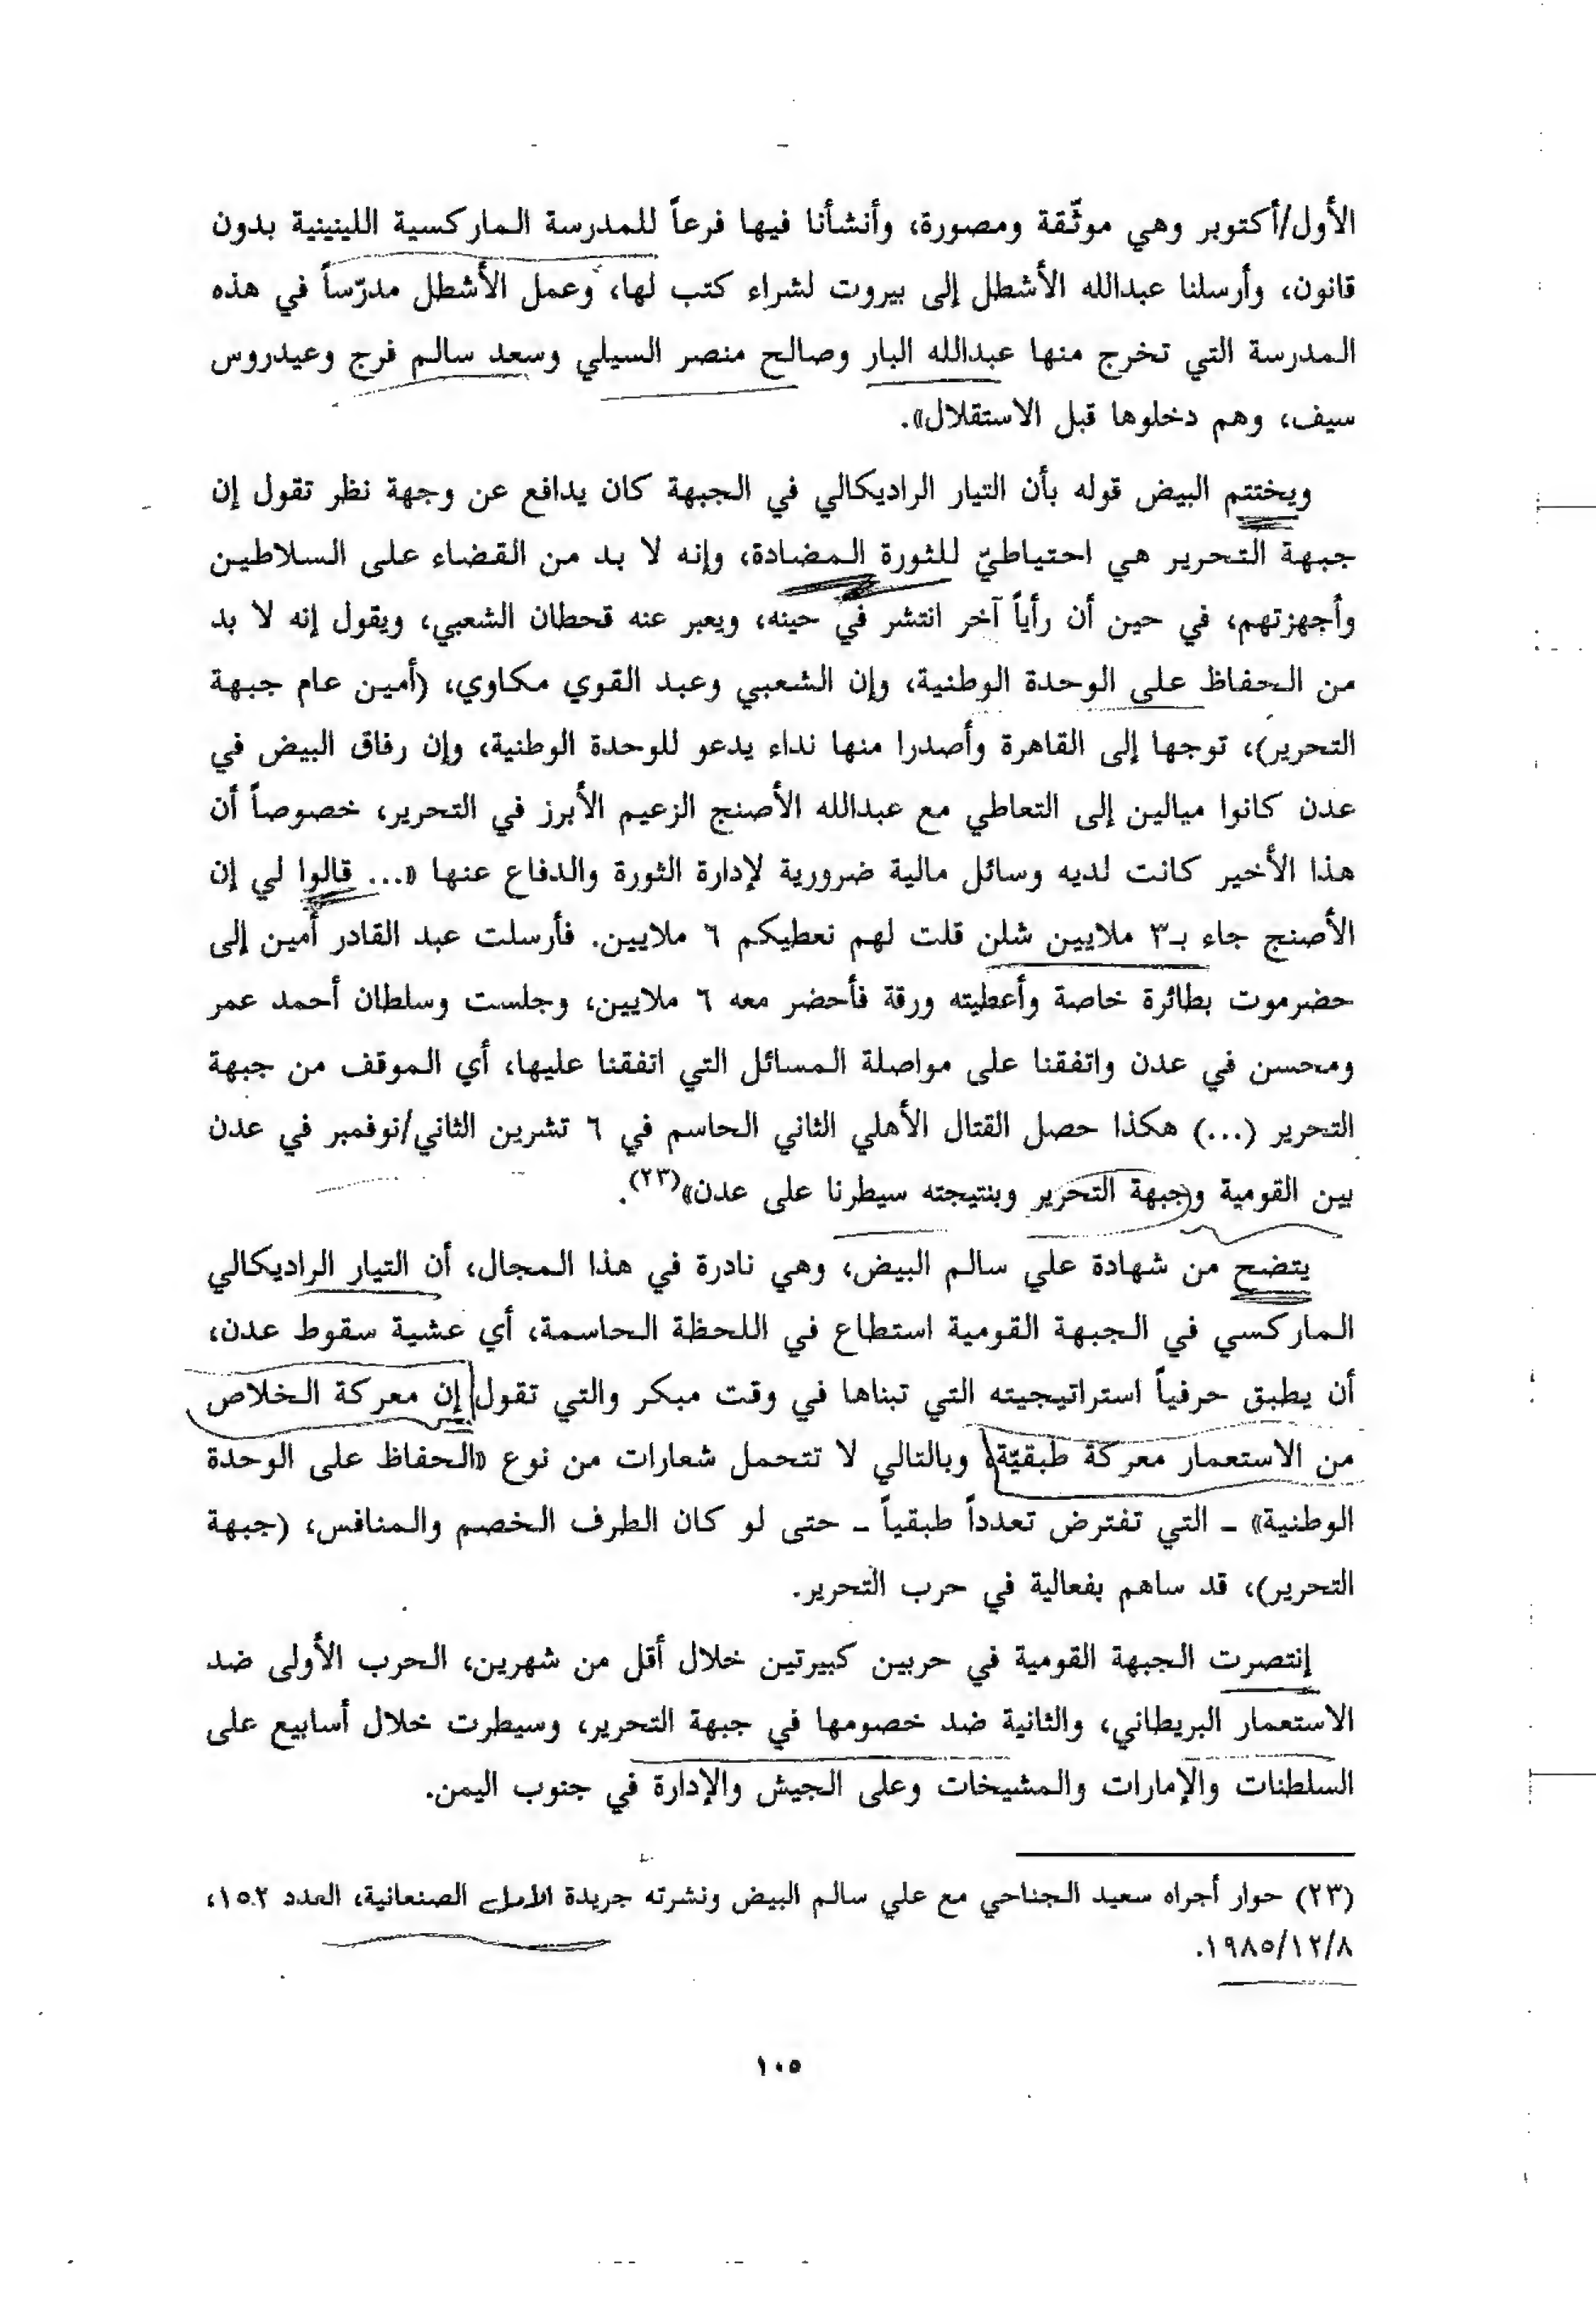 الأول/أكتوبر وهي موثّقة ومصورة، وأنشأنا فيها فرعاً للمدرسة الماركسية اللينينية بدون
قانون، وأرسلنا عبدالله الأشطل إلى بيروت لشراء كتب لها، وعمل الأشطل مدرّساً في هذه
المدرسة التي تخرج منها عبدالله البار وصالح منصر السيلي وسعد سالم فرج وعيدروس
سيف، وهم دخلوها قبل الاستقلال».
ويختتم البيض قوله بأن التيار الراديكالي في الجبهة كان يدافع عن وجهة نظر تقول إن
جبهة التحرير هي احتياطيّ للثورة المضادة، وإنه لا بد من القضاء على السلاطين
وأجهزتهم، في حين أن رأياً آخر انتشر في حينه، ويعبر عنه قحطان الشعبي، ويقول إنه لا بد
من الحفاظ على الوحدة الوطنية، وإن الشعبي وعبد القوي مكاوي، (أمين عام جبهة
التحرير)، توجها إلى القاهرة وأصدرا منها نداء يدعو للوحدة الوطنية، وإن رفاق البيض في
عدن كانوا ميالين إلى التعاطي مع عبدالله الأصنج الزعيم الأبرز في التحرير، خصوصاً أن
هذا الأخير كانت لديه وسائل مالية ضرورية لإدارة الثورة والدفاع عنها «... قالوا لي إن
الأصنج جاء بـ٣ ملايين شلن قلت لهم نعطيكم ٦ ملايين. فأرسلت عبد القادر أمين إلى
حضرموت بطائرة خاصة وأعطيته ورقة فأحضر معه ٦ ملايين، وجلست وسلطان أحمد عمر
ومحسن في عدن واتفقنا على مواصلة المسائل التي اتفقنا عليها، أي الموقف من جبهة
التحرير (...) هكذا حصل القتال الأهلي الثاني الحاسم في ٦ تشرين الثاني/نوفمبر في عدن
بين القومية وجبهة التحرير وبنتيجته سيطرنا على عدن»(٢٣).
يتضح من شهادة علي سالم البيض، وهي نادرة في هذا المجال، أن التيار الراديكالي
الماركسي في الجبهة القومية استطاع في اللحظة الحاسمة، أي عشية سقوط عدن،
أن يطبق حرفياً استراتيجيته التي تبناها في وقت مبكر والتي تقول إن معركة الخلاص
من الاستعمار معركة طبقيّة، وبالتالي لا تتحمل شعارات من نوع «الحفاظ على الوحدة
الوطنية» ـ التي تفترض تعدداً طبقياً ـ حتى لو كان الطرف الخصم والمنافس، (جبهة
التحرير)، قد ساهم بفعالية في حرب التحرير.
إنتصرت الجبهة القومية في حربين كبيرتين خلال أقل من شهرين، الحرب الأولى ضد
الاستعمار البريطاني، والثانية ضد خصومها في جبهة التحرير، وسيطرت خلال أسابيع على
السلطنات والإمارات والمشيخات وعلى الجيش والإدارة في جنوب اليمن.
(٢٣) حوار أجراه سعيد الجناحي مع علي سالم البيض ونشرته جريدة الأمل الصنعانية، العدد ١٥٢،
١٩٨٥/١٢/٨.
١٠٥